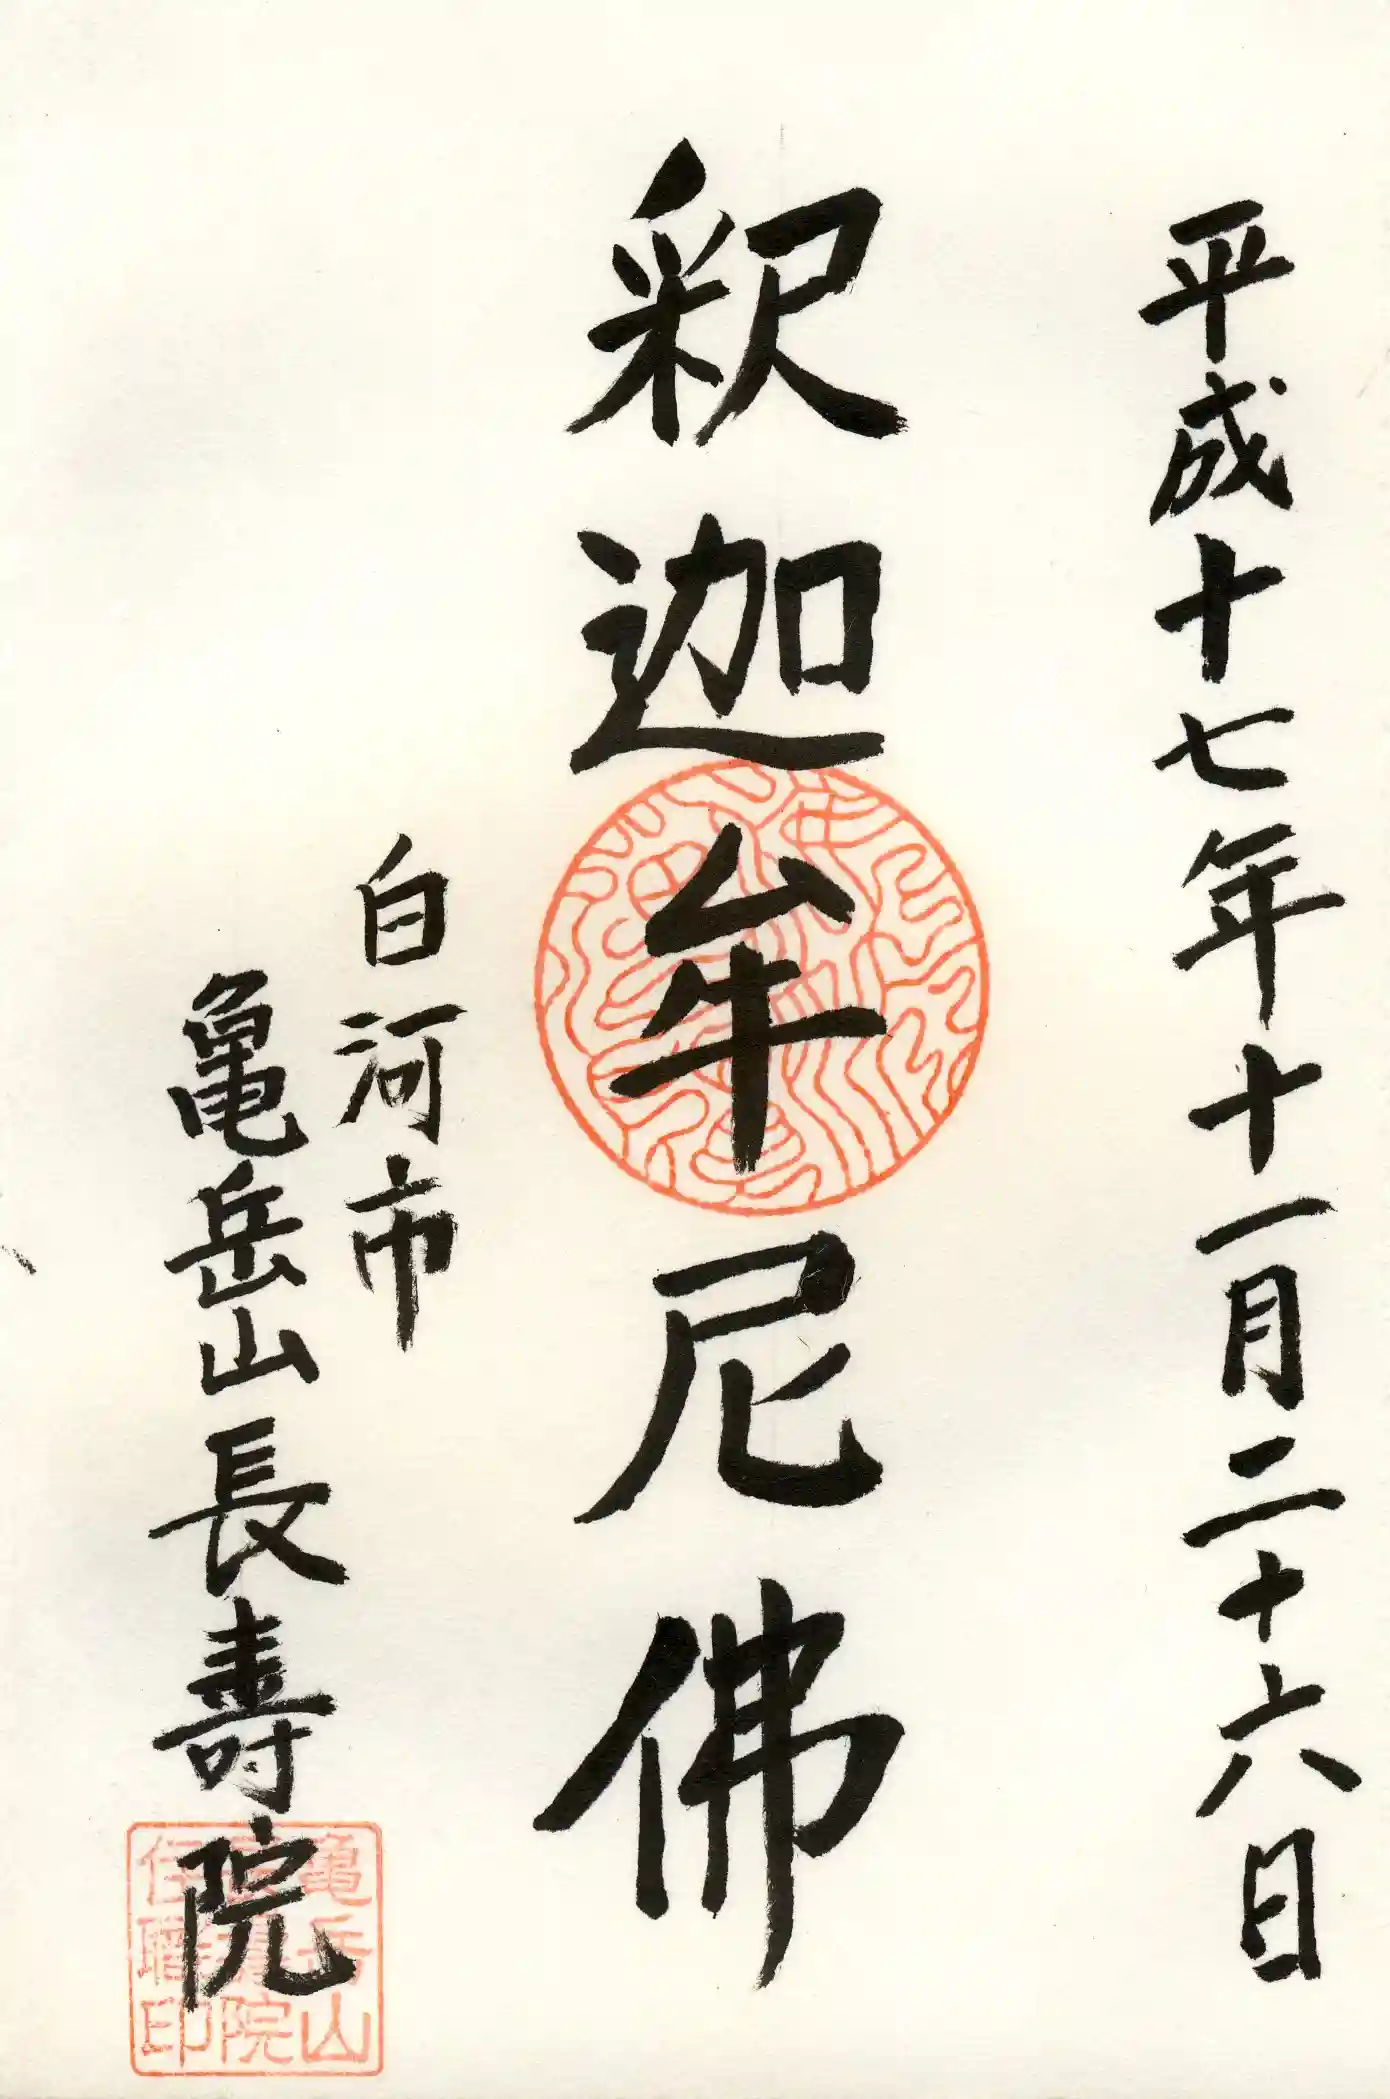 平成十七年十一月二十六日
釈迦牟尼佛
白河市
亀岳山長寿院
亀岳山
長寿院
住職印